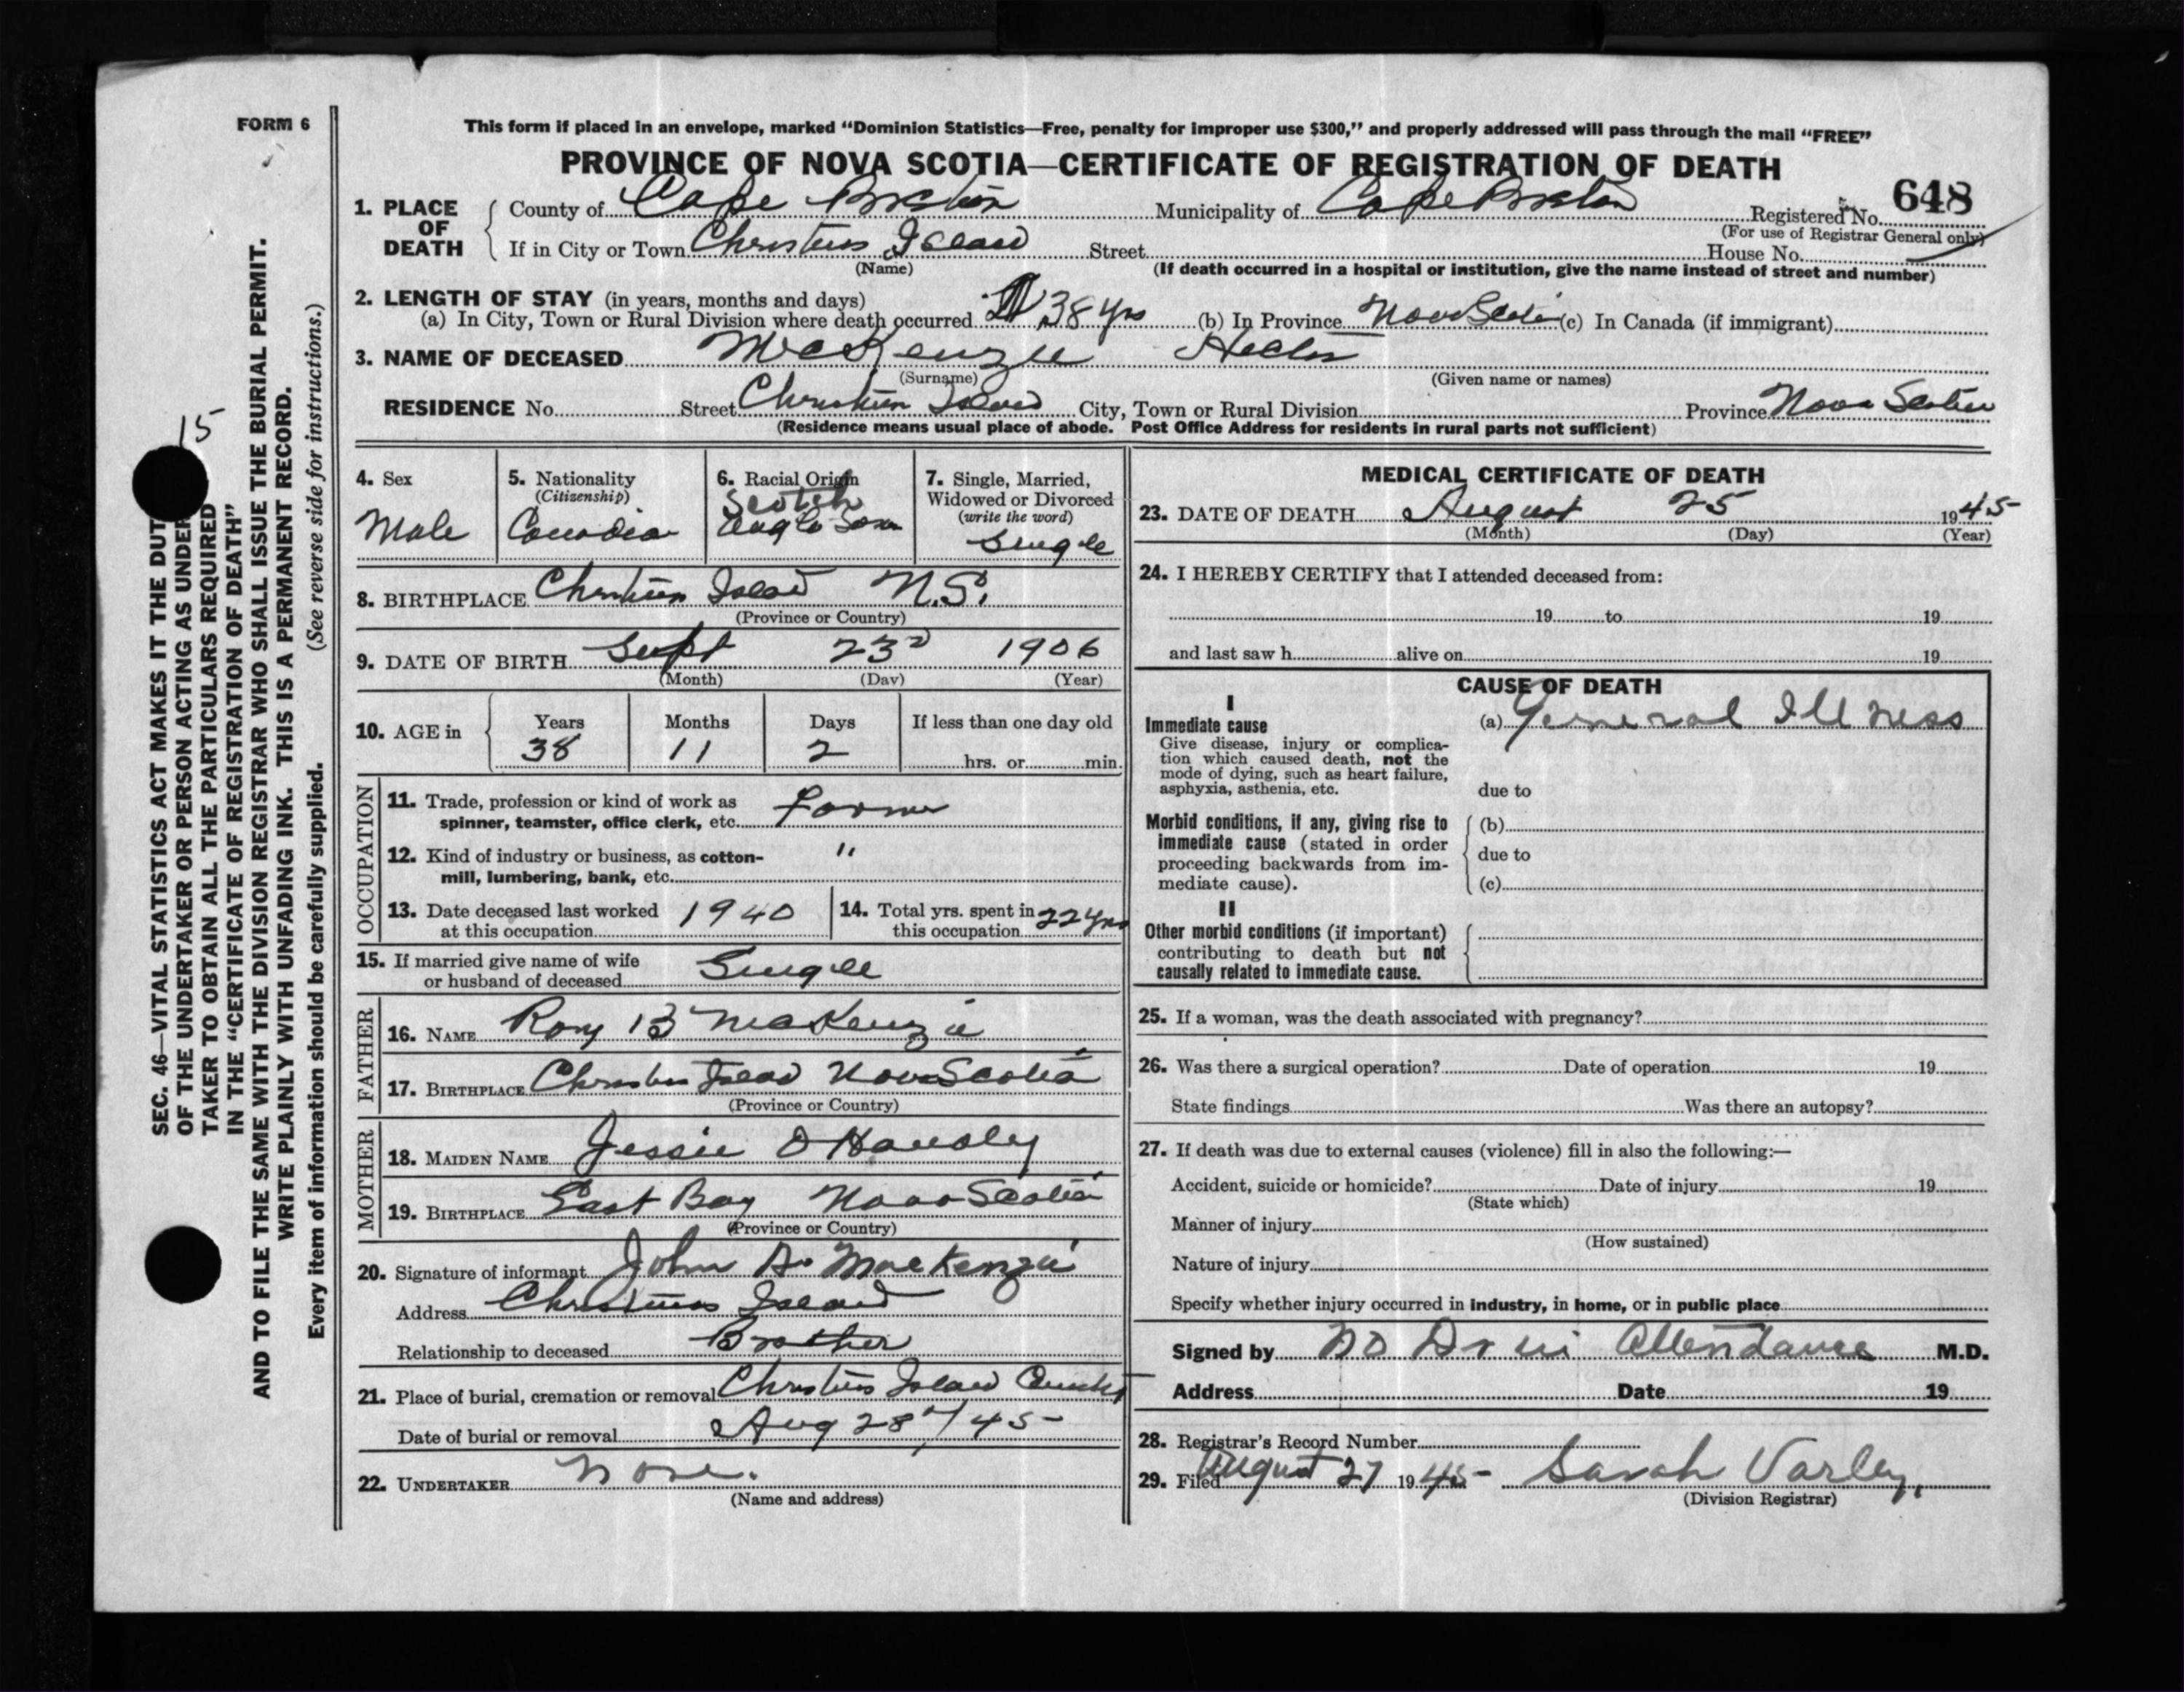 FORM 6
This form if placed in an envelope, marked "Dominion Statistics—Free, penalty for improper use $300," and properly addressed will pass through the mail "FREE"
PROVINCE OF NOVA SCOTIA—CERTIFICATE OF REGISTRATION OF DEATH
648
1. PLACE OF DEATH
County of Cape Breton Municipality of Cape Breton Registered No.
(For use of Registrar General only)
If in City or Town Christmas Island Street House No.
(Name) (If death occurred in a hospital or institution, give the name instead of street and number)
2. LENGTH OF STAY (in years, months and days)
(a) In City, Town or Rural Division where death occurred 38 yrs (b) In Province Nova Scotia (c) In Canada (if immigrant)
3. NAME OF DECEASED McKenzie Hector
(Surname) (Given name or names)
RESIDENCE No. Street Christmas Island City, Town or Rural Division Province Nova Scotia
(Residence means usual place of abode. Post Office Address for residents in rural parts not sufficient)
4. Sex
Male
5. Nationality
(Citizenship)
Canadian
6. Racial Origin
Scotch
Anglo Saxon
7. Single, Married,
Widowed or Divorced
(write the word)
Single
8. BIRTHPLACE Christmas Island N.S.
(Province or Country)
9. DATE OF BIRTH Sept 23d 1906
(Month) (Day) (Year)
10. AGE in Years Months Days If less than one day old
38 11 2 hrs. or min.
OCCUPATION
11. Trade, profession or kind of work as
spinner, teamster, office clerk, etc. Farmer
12. Kind of industry or business, as cotton- "
mill, lumbering, bank, etc.
13. Date deceased last worked 1940
at this occupation
14. Total yrs. spent in
this occupation 22 yrs
15. If married give name of wife
or husband of deceased Single
FATHER
16. NAME Rory B MacKenzie
17. BIRTHPLACE Christmas Island Nova Scotia
(Province or Country)
MOTHER
18. MAIDEN NAME Jessie O Handley
19. BIRTHPLACE East Bay Nova Scotia
(Province or Country)
20. Signature of informant John A. MacKenzie
Address Christmas Island
Relationship to deceased Brother
21. Place of burial, cremation or removal Christmas Island
Date of burial or removal Aug 28th/45
22. UNDERTAKER None.
(Name and address)
MEDICAL CERTIFICATE OF DEATH
23. DATE OF DEATH August 25 1945
(Month) (Day) (Year)
24. I HEREBY CERTIFY that I attended deceased from:
19 to 19
and last saw h alive on 19
CAUSE OF DEATH
I
Immediate cause (a) General Illness
Give disease, injury or complica-
tion which caused death, not the
mode of dying, such as heart failure,
asphyxia, asthenia, etc. due to
Morbid conditions, if any, giving rise to (b)
immediate cause (stated in order due to
proceeding backwards from im-
mediate cause). (c)
II
Other morbid conditions (if important)
contributing to death but not
causally related to immediate cause.
25. If a woman, was the death associated with pregnancy?
26. Was there a surgical operation? Date of operation 19
State findings Was there an autopsy?
27. If death was due to external causes (violence) fill in also the following:—
Accident, suicide or homicide? Date of injury 19
(State which)
Manner of injury
(How sustained)
Nature of injury
Specify whether injury occurred in industry, in home, or in public place
Signed by No Dr in Attendance M.D.
Address Date 19
28. Registrar's Record Number
29. Filed August 27 1945 Sarah Varley,
(Division Registrar)
15
SEC. 46—VITAL STATISTICS ACT MAKES IT THE DUT
OF THE UNDERTAKER OR PERSON ACTING AS UNDER
TAKER TO OBTAIN ALL THE PARTICULARS REQUIRED
IN THE "CERTIFICATE OF REGISTRATION OF DEATH"
AND TO FILE THE SAME WITH THE DIVISION REGISTRAR WHO SHALL ISSUE THE BURIAL PERMIT.
WRITE PLAINLY WITH UNFADING INK. THIS IS A PERMANENT RECORD.
Every item of information should be carefully supplied. (See reverse side for instructions.)